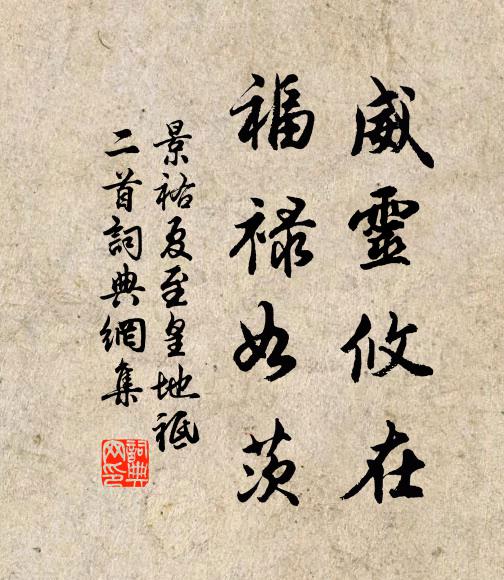 威靈攸在
福禄如茨
景祐夏至皇地祇
二首詞典網集
詞典
网印